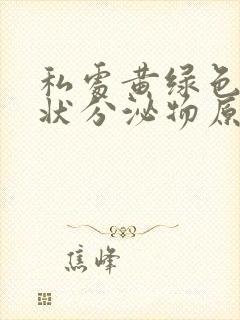 私处黄绿色
状分泌物原
焦峰